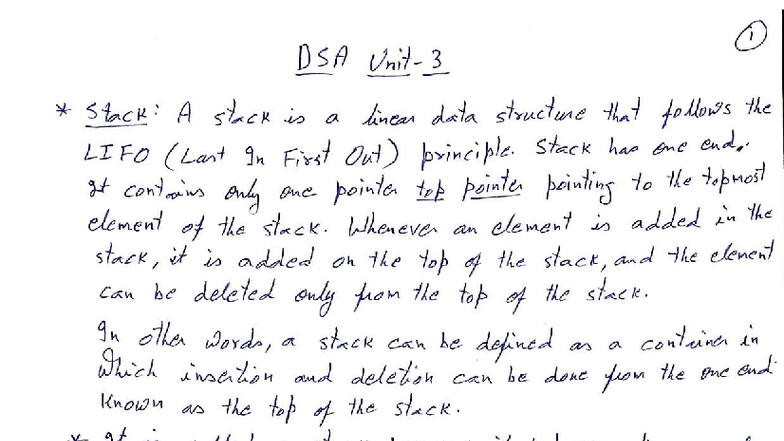 1
DSA Unit-3
* Stack: A stack is a linear data structure that follows the
LIFO (Last In First Out) principle. Stack has one end.
It contains only one pointer top pointer pointing to the topmost
element of the stack. Whenever an element is added in the
stack, it is added on the top of the stack, and the element
can be deleted only from the top of the stack.
In other words, a stack can be defined as a container in
which insertion and deletion can be done from the one end
known as the top of the stack.
* It is